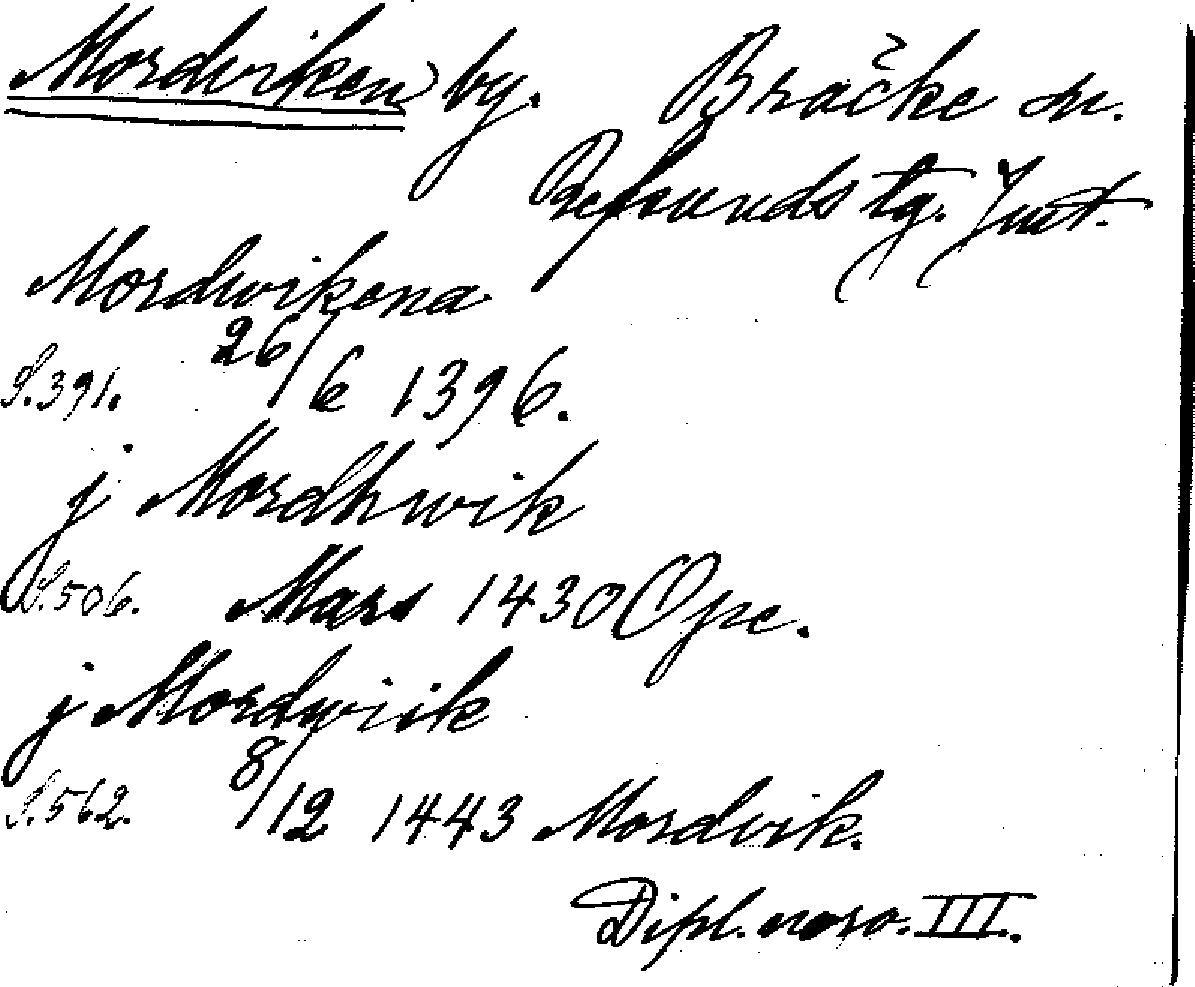 Mordviken by. Bräcke sn.
Refsunds tg. Jmt.
Mordwikena
S. 391. 26/6 1396.
j Mordhwik
S. 506. Mars 1430 Ope.
j Mordwiik
S. 562. 8/12 1443 Mordvik.
Dipl. norv. III.